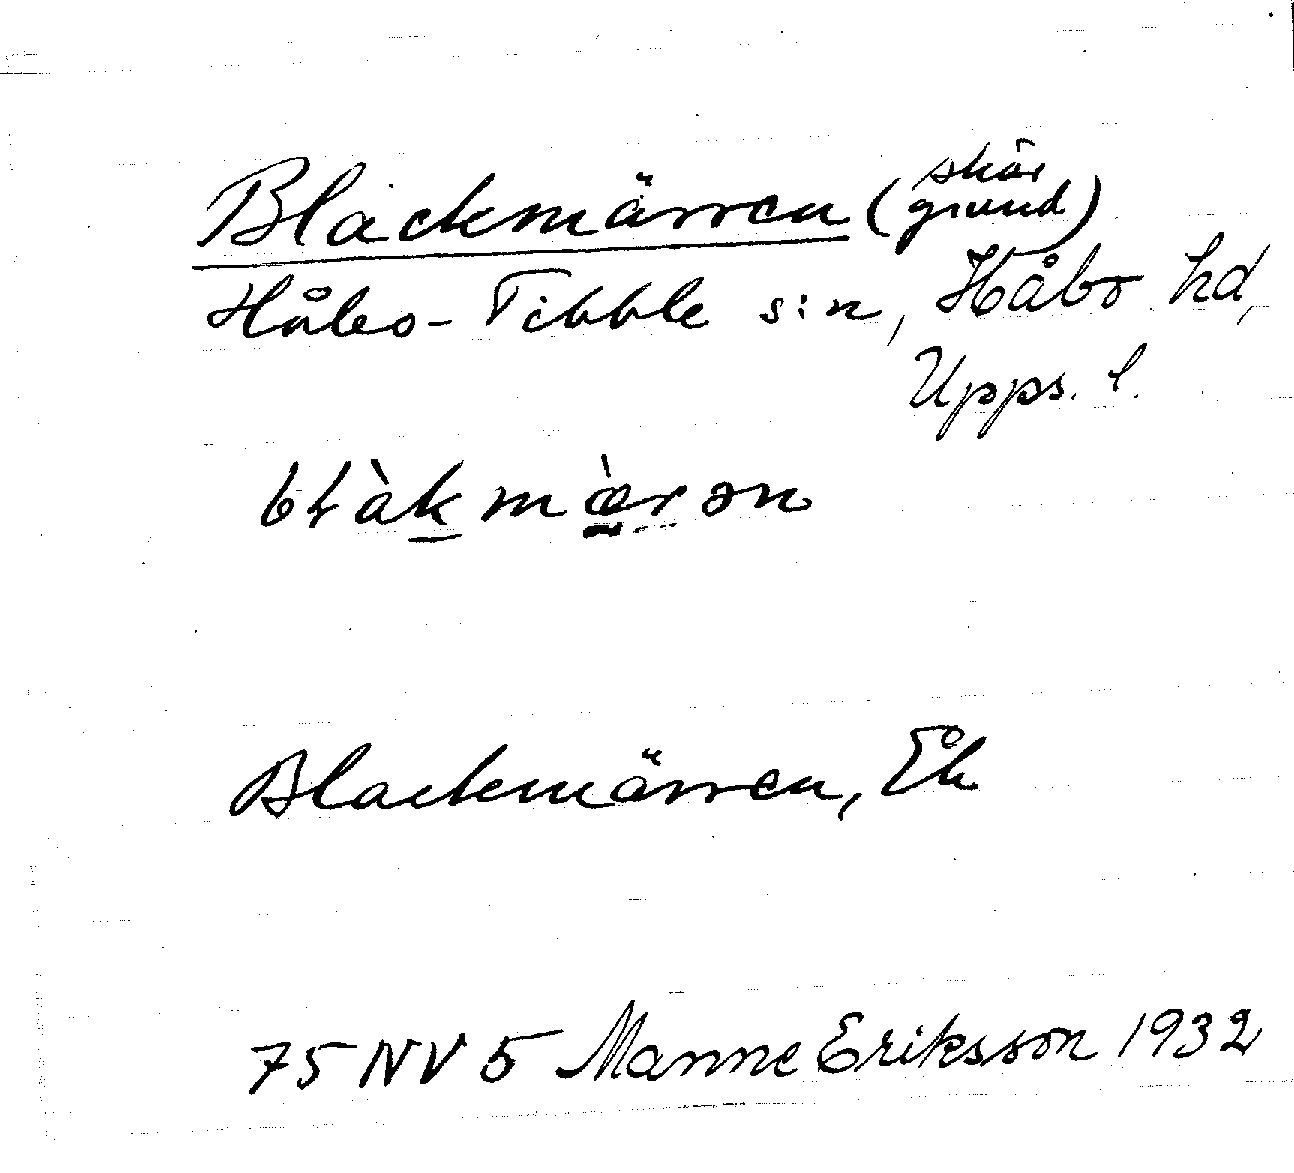 Blackmärren (skär grund)
Håbo-Tibble s:n, Håbo hd,
Upps. l.
bɫàk mæ̀r ən
Blackmärren, Ek
75 NV 5 Manne Eriksson 1932